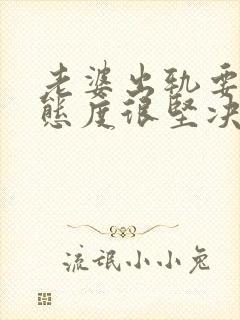 老婆出轨要
态度很坚决
流氓小小兔